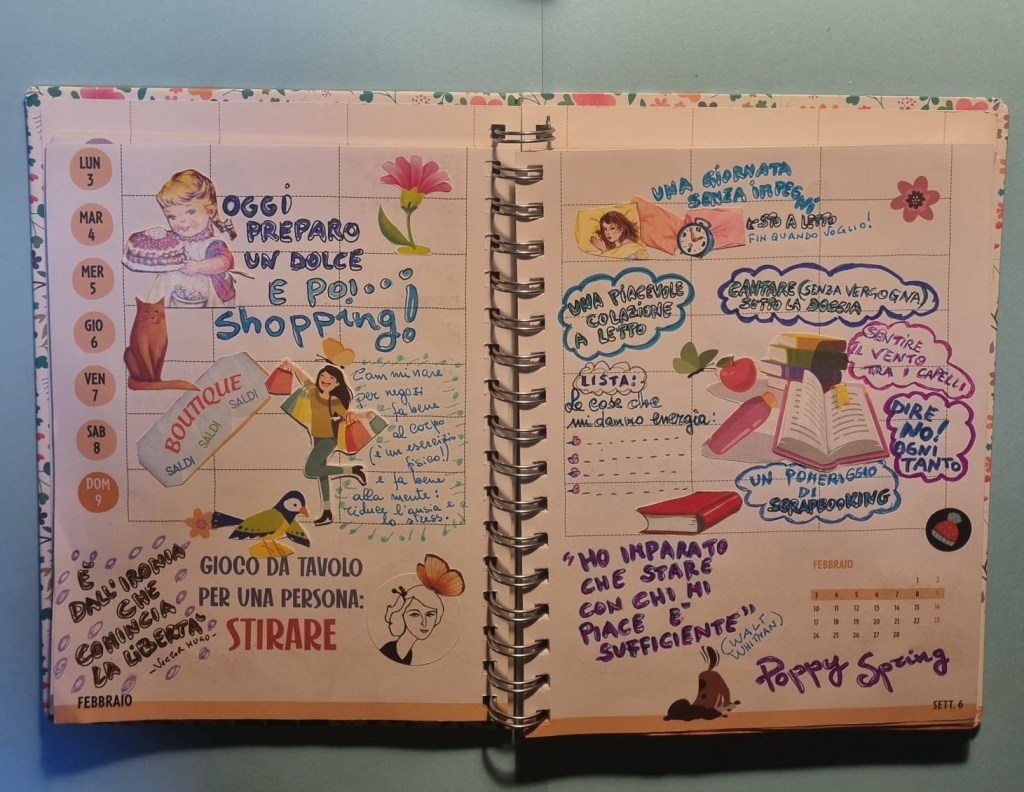 LUN
3
MAR
4
MER
5
GIO
6
VEN
7
SAB
8
DOM
9
OGGI
PREPARO
UN DOLCE
E POI...
Shopping!
BOUTIQUE
SALDI
SALDI
SALDI
Camminare
per negozi
fa bene
al corpo
(è un esercizio
fisico!)
e fa bene
alla mente:
riduce l'ansia e
lo stress.
E'
DALL'IRONIA
CHE
COMINCIA
LA LIBERTA'
-VICTOR HUGO-
GIOCO DA TAVOLO
PER UNA PERSONA:
STIRARE
FEBBRAIO
UNA GIORNATA
SENZA IMPEGNI
RESTO A LETTO
FIN QUANDO VOGLIO!
UNA PIACEVOLE
COLAZIONE
A LETTO
CANTARE (SENZA VERGOGNA)
SOTTO LA DOCCIA
SENTIRE
IL VENTO
TRA I CAPELLI
LISTA:
Le cose che
mi danno energia:
DIRE
NO!
OGNI
TANTO
UN POMERIGGIO
DI
SCRAPBOOKING
"HO IMPARATO
CHE STARE
CON CHI MI
PIACE E'
SUFFICIENTE"
(WALT
WHITMAN)
FEBBRAIO
1 2
3 4 5 6 7 8 9
10 11 12 13 14 15 16
17 18 19 20 21 22 23
24 25 26 27 28
Poppy Spring
SETT. 6